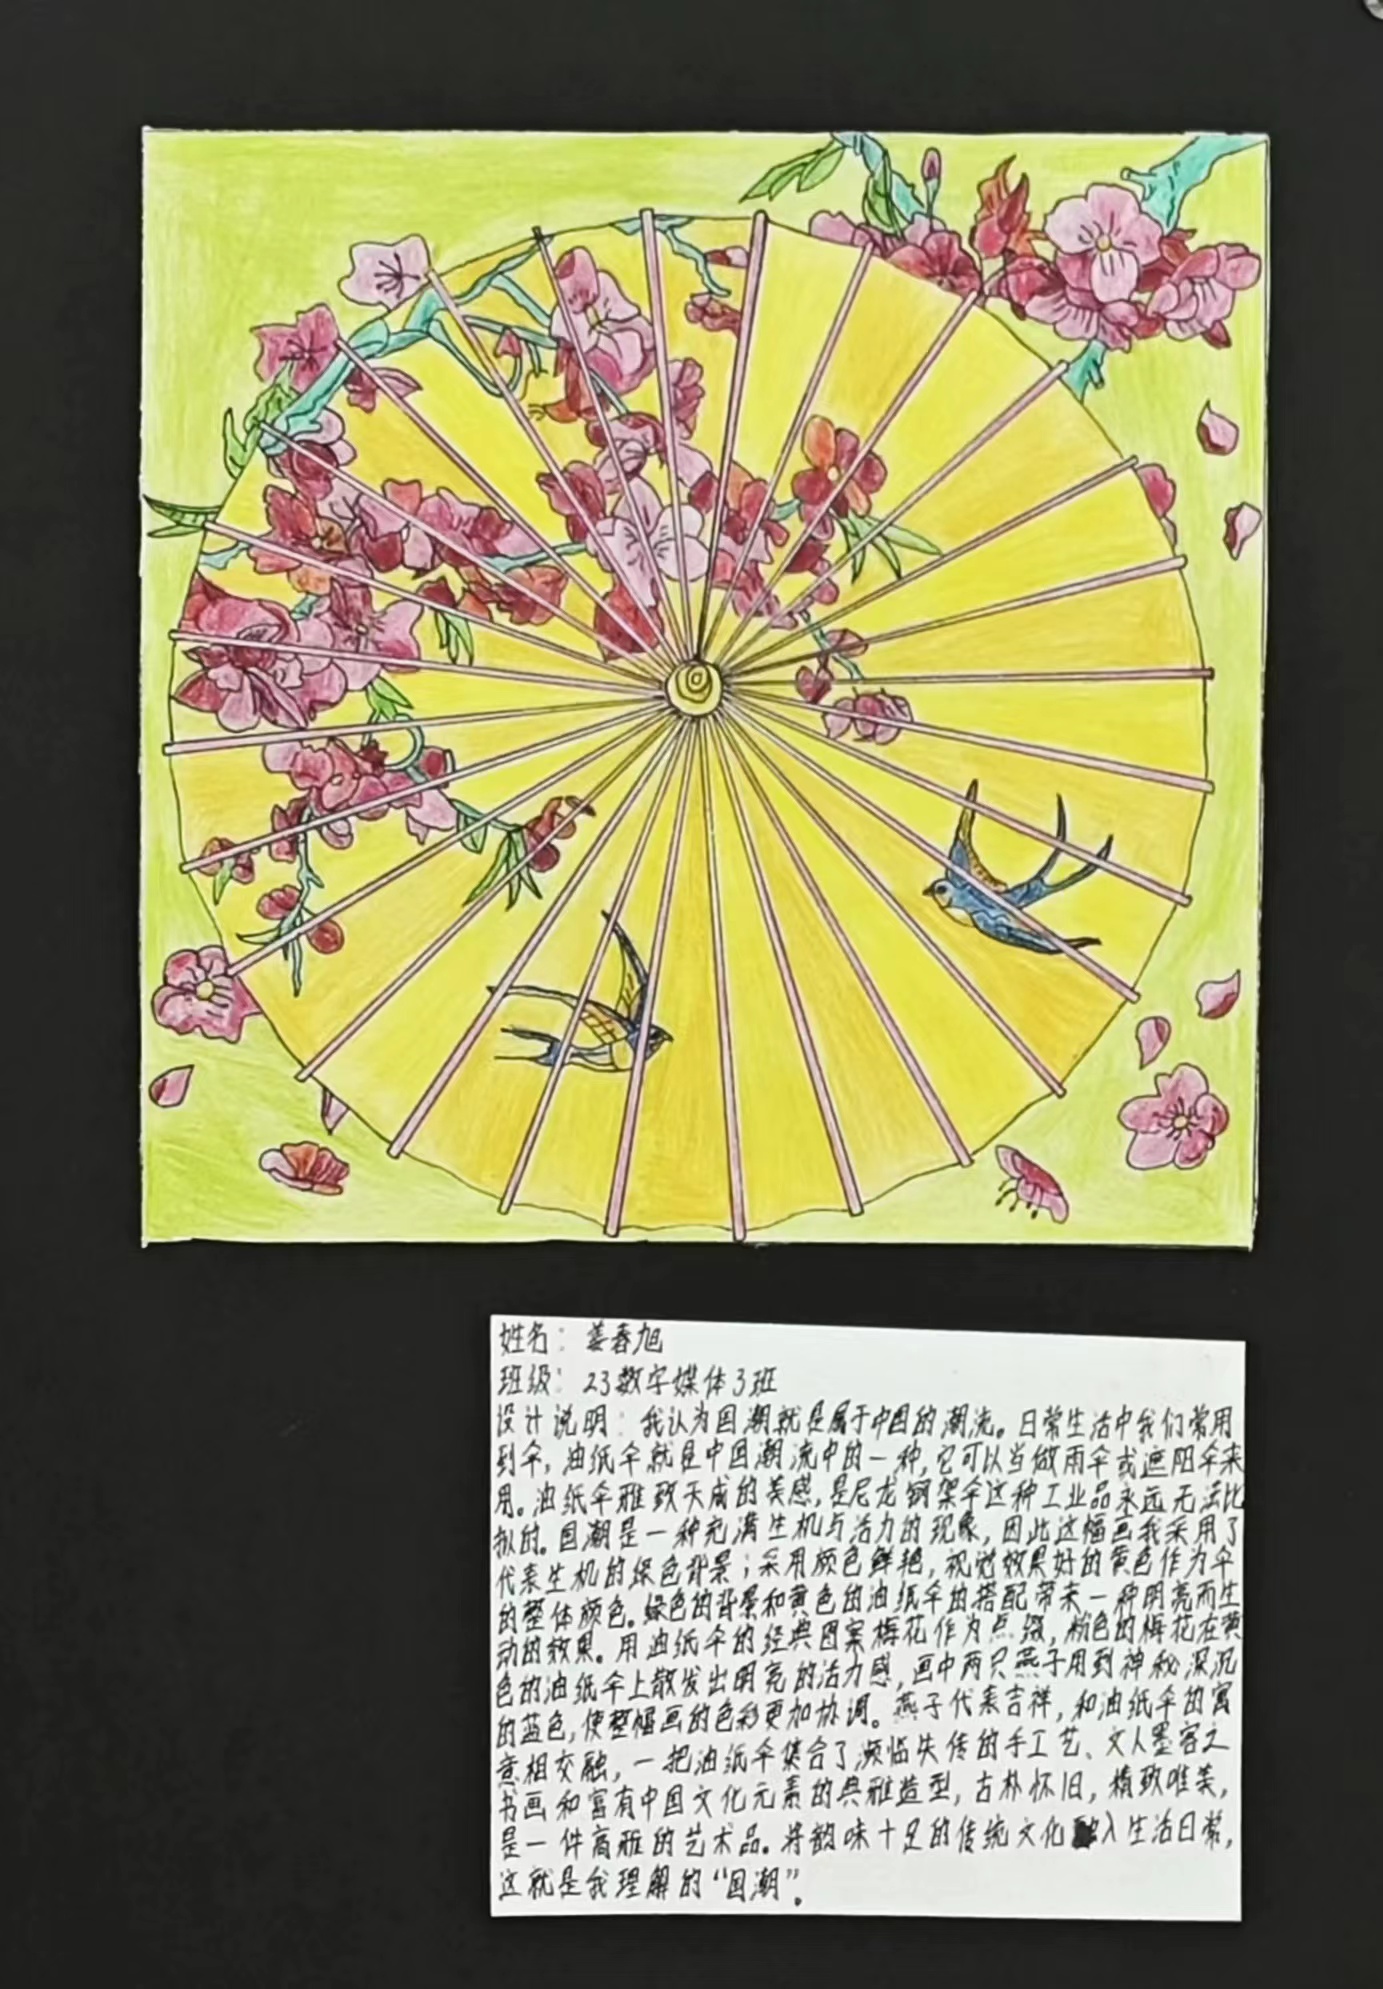 姓名：姜春旭
班级：23数字媒体3班
设计说明：我认为国潮就是属于中国的潮流。日常生活中我们常用
到伞，油纸伞就是中国潮流中的一种，它可以当做雨伞或遮阳伞来
用。油纸伞雅致天成的美感，是尼龙钢架伞这种工业品永远无法比
拟的。国潮是一种充满生机与活力的现象，因此这幅画我采用了
代表生机的绿色背景；采用颜色鲜艳，视觉效果好的黄色作为伞
的整体颜色。绿色的背景和黄色的油纸伞的搭配带来一种明亮而生
动的效果。用油纸伞的经典图案梅花作为点缀，粉色的梅花在黄
色的油纸伞上散发出明亮的活力感，画中两只燕子用到神秘深沉
的蓝色，使整幅画的色彩更加协调。燕子代表吉祥，和油纸伞的寓
意相交融，一把油纸伞集合了濒临失传的手工艺、文人墨客之
书画和富有中国文化元素的典雅造型，古朴怀旧，精致唯美，
是一件高雅的艺术品。将韵味十足的传统文化融入生活日常，
这就是我理解的“国潮”。